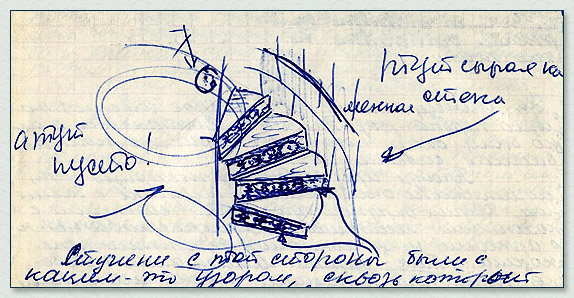 а тут
пусто!
тут сырая ка
менная стена
Ступени с той стороны были с
каким-то узором, сквозь который